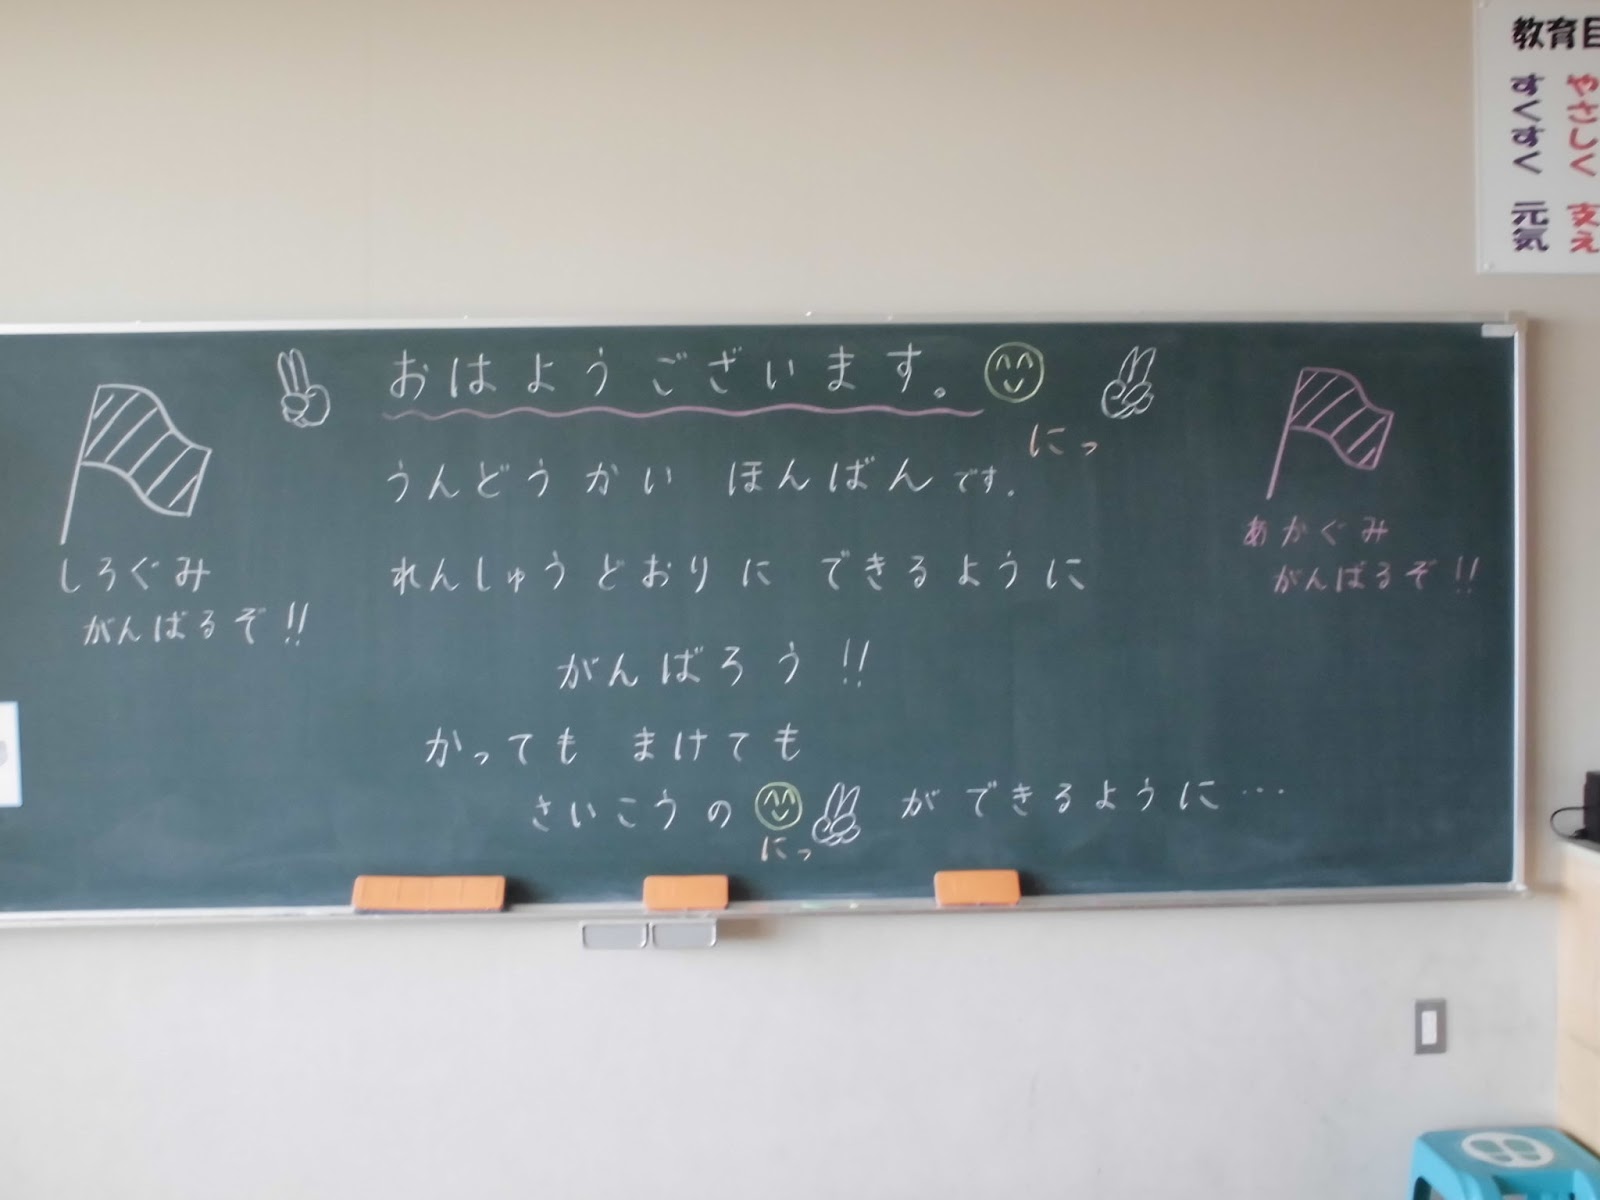 おはようございます。
にっ
うんどうかい ほんばんです。
れんしゅうどおりに できるように
がんばろう!!
かっても まけても
さいこうの ができるように…
にっ
しろぐみ
がんばるぞ!!
あかぐみ
がんばるぞ!!
教育目
やさしく 支え
すくすく 元気